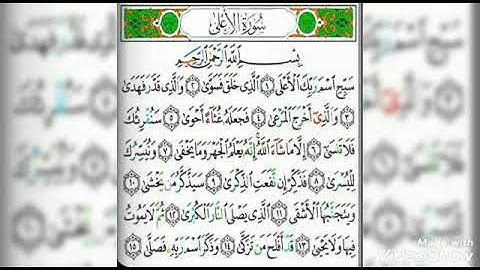 سُورَةُ الأَعْلَىٰ
بِسْمِ اللَّهِ الرَّحْمَٰنِ الرَّحِيمِ
سَبِّحِ اسْمَ رَبِّكَ الْأَعْلَى ﴿١﴾ الَّذِي خَلَقَ فَسَوَّىٰ ﴿٢﴾ وَالَّذِي قَدَّرَ فَهَدَىٰ
﴿٣﴾ وَالَّذِي أَخْرَجَ الْمَرْعَىٰ ﴿٤﴾ فَجَعَلَهُ غُثَاءً أَحْوَىٰ ﴿٥﴾ سَنُقْرِئُكَ
فَلَا تَنسَىٰ ﴿٦﴾ إِلَّا مَا شَاءَ اللَّهُ إِنَّهُ يَعْلَمُ الْجَهْرَ وَمَا يَخْفَىٰ ﴿٧﴾ وَنُيَسِّرُكَ
لِلْيُسْرَىٰ ﴿٨﴾ فَذَكِّرْ إِن نَّفَعَتِ الذِّكْرَىٰ ﴿٩﴾ سَيَذَّكَّرُ مَن يَخْشَىٰ ﴿١٠﴾
وَيَتَجَنَّبُهَا الْأَشْقَى ﴿١١﴾ الَّذِي يَصْلَى النَّارَ الْكُبْرَىٰ ﴿١٢﴾ ثُمَّ لَا يَمُوتُ
فِيهَا وَلَا يَحْيَىٰ ﴿١٣﴾ قَدْ أَفْلَحَ مَن تَزَكَّىٰ ﴿١٤﴾ وَذَكَرَ اسْمَ رَبِّهِ فَصَلَّىٰ ﴿١٥﴾
Made with
VideoShow